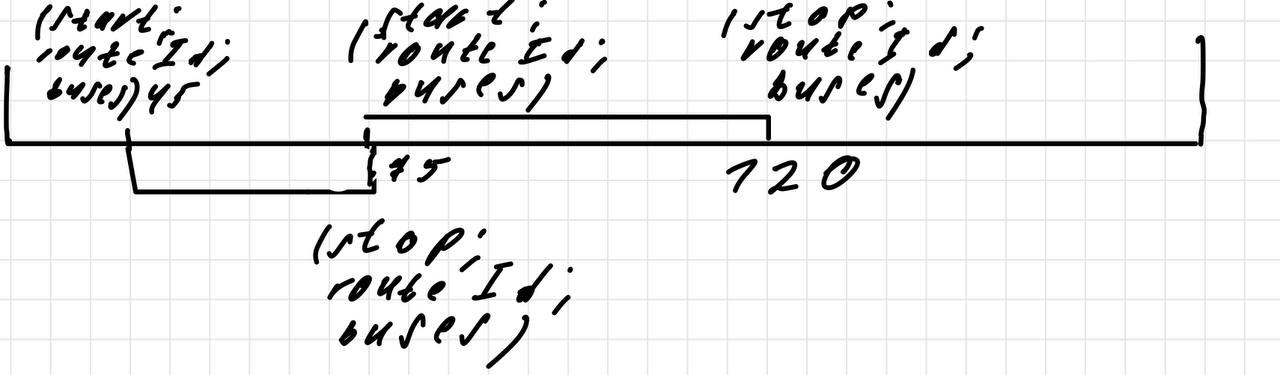 (start;
routeId;
buses) 45
(start;
routeId;
buses)
(stop;
routeId;
buses)
75
120
(stop;
routeId;
buses)